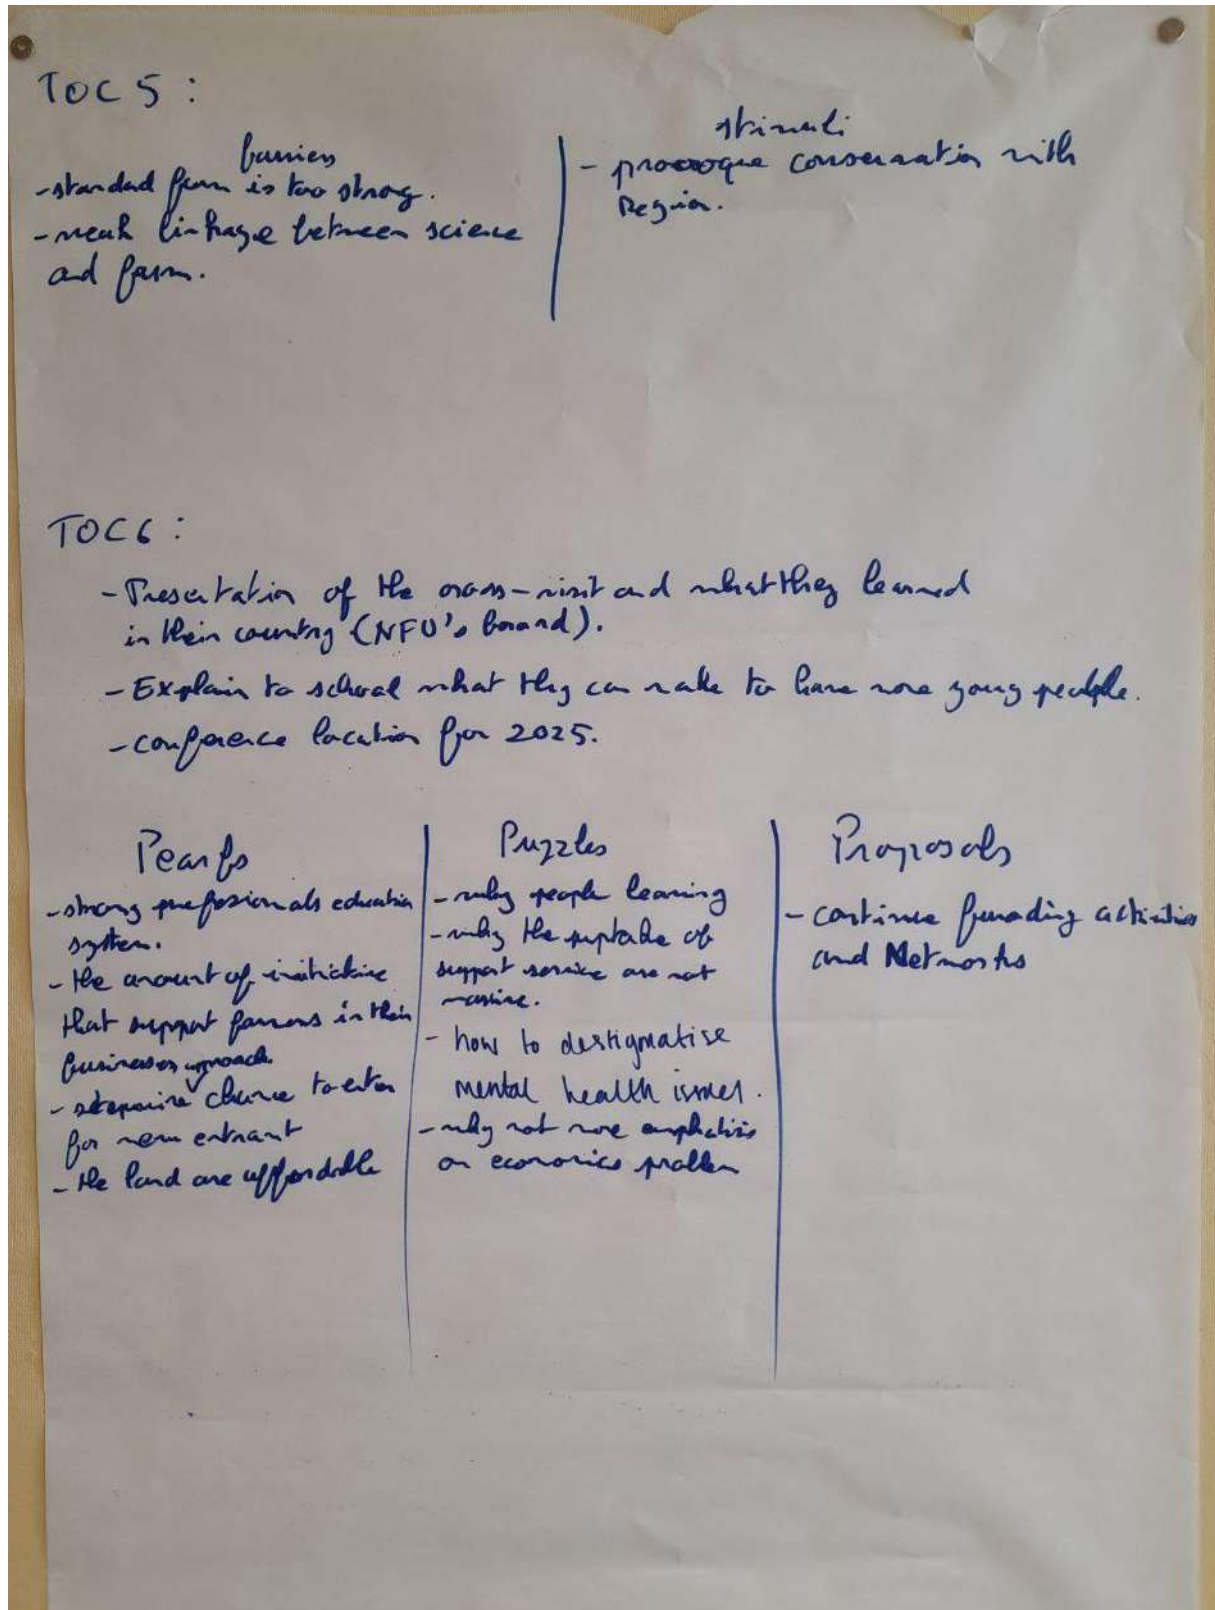 TOC 5 :
barriers
- standard farm is too strong.
- weak linkage between science
and farm.
stimuli
- provoque conservation with
Region.
TOC 6 :
- Presentation of the cross-visit and what they learned
in their country (NFU's board).
- Explain to school what they can make to have more young people.
- conference location for 2025.
Pearls
- strong professionals education
system.
- the amount of initiative
that support farmers in their
businesses approach.
- chance to enter
for new entrant
- the land are affordable
Puzzles
- why people leaving
- why the uptake of
support service are not
massive.
- how to destigmatise
mental health issues.
- why not more emphatisis
on economics problem
Proposals
- continue funding activities
and Networks